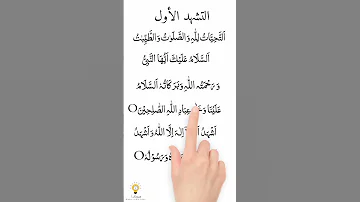 التشهد الأول
اَلتَّحِيَّاتُ لِلّٰهِ وَالصَّلَوٰتُ وَالطَّيِّبٰتُ
اَلسَّلَامُ عَلَيْكَ اَيُّهَا النَّبِىُّ
وَرَحْمَتُهُ اللّٰهِ وَبَرَكَاتُهُ اَلسَّلَامُ
عَلَيْنَا عِبَادِ اللّٰهِ الصّٰلِحِيْنَ
اَشْهَدُ اِلٰهَ اِلَّا اللّٰهُ وَاَشْهَدُ
وَرَسُوْلُهُ